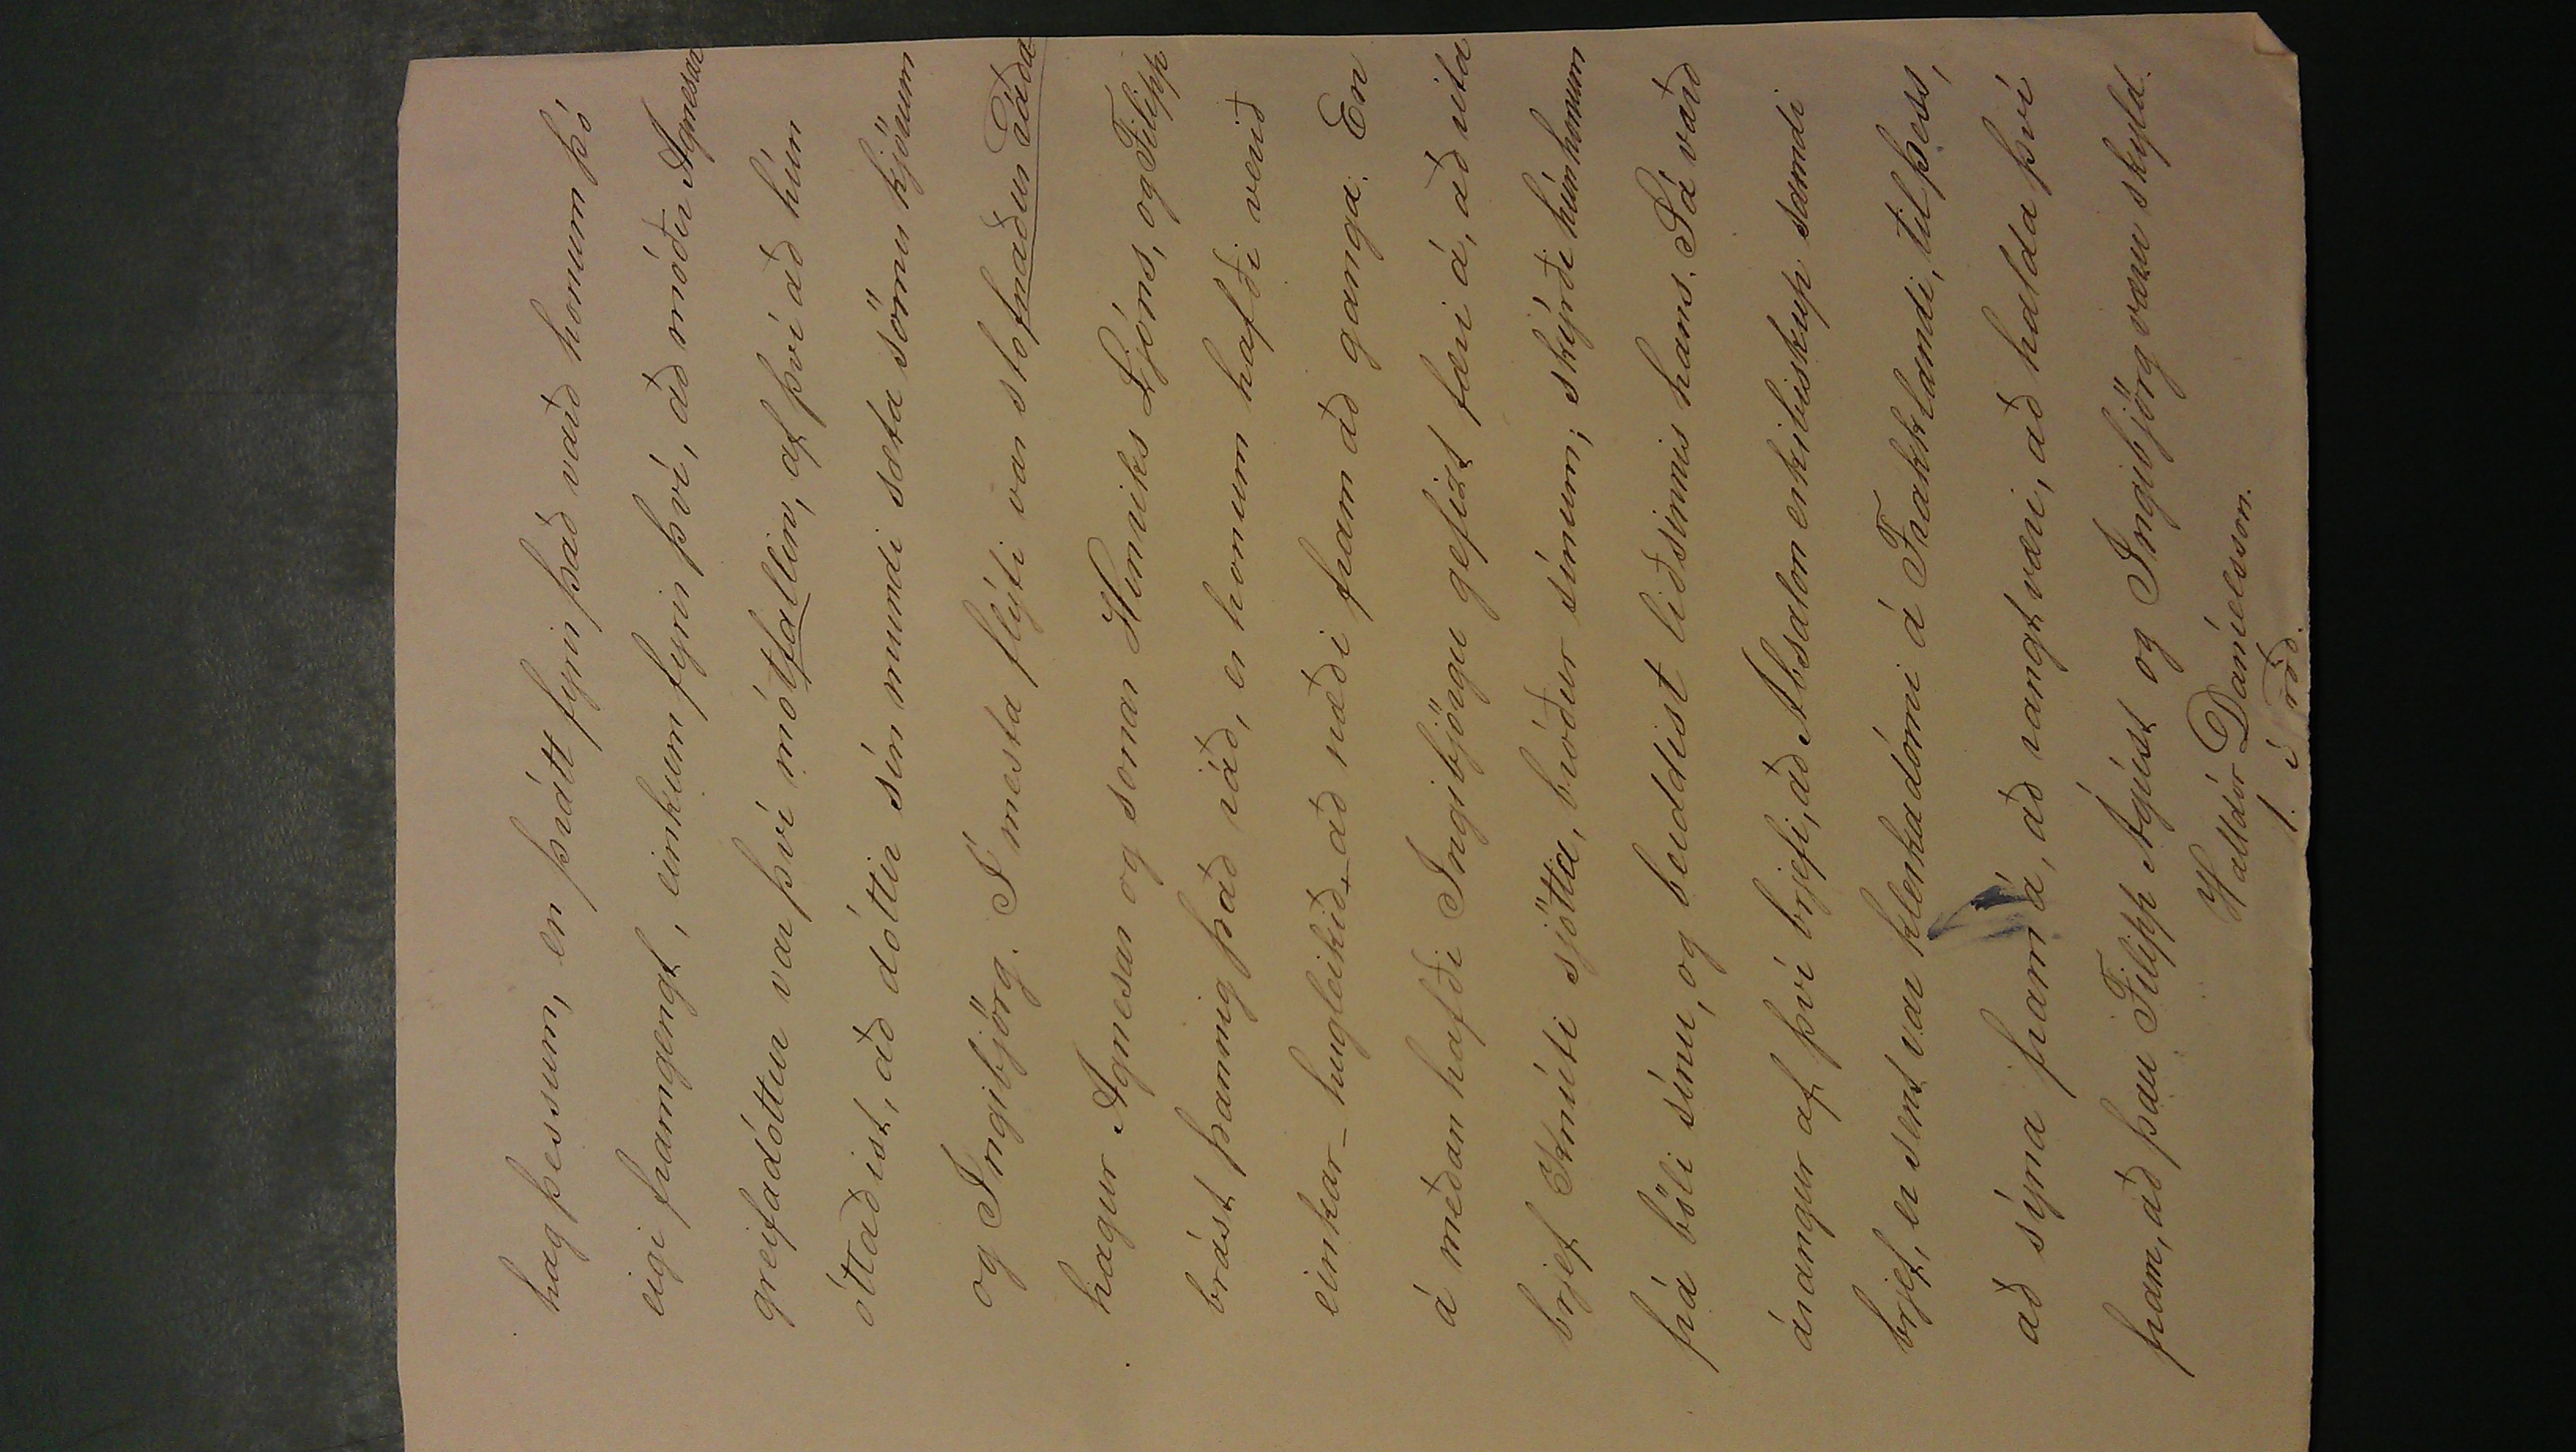 hag þessum, en þrátt fyrir það varð honum þó
eigi framgengt, einkum fyrir því, að móðir Agnesar
greifadóttur var því mótfallin, af því að hún
óttaðist, að dóttir sín mundi sæta sömu kjörum
og Ingibjörg. Í mesta flýti var stofnaður ráða
hagur Agnesar og sonar Hinriks Ljóns, og Filipp
brást þannig það ráð, er honum hafði verið
einkar-hugleikið-að næði fram að ganga. En
á meðan hafði Ingibjörgu gefist færi á, að rita
brjef Knúti sjötta, bróður sínum; skýrði hún honum
frá böli sínu, og beiddist liðsinnis hans. Sá varð
árangur af því brjefi, að Absalon erkibiskup samdi
brjef, er sent var klerkadómi á Frakklandi, til þess,
að sýna fram á, að rangt væri, að halda því
fram, að þau Filipp Ágúst og Ingibjörg væru skyld.
Halldór Daníelsson.
1. í röð.